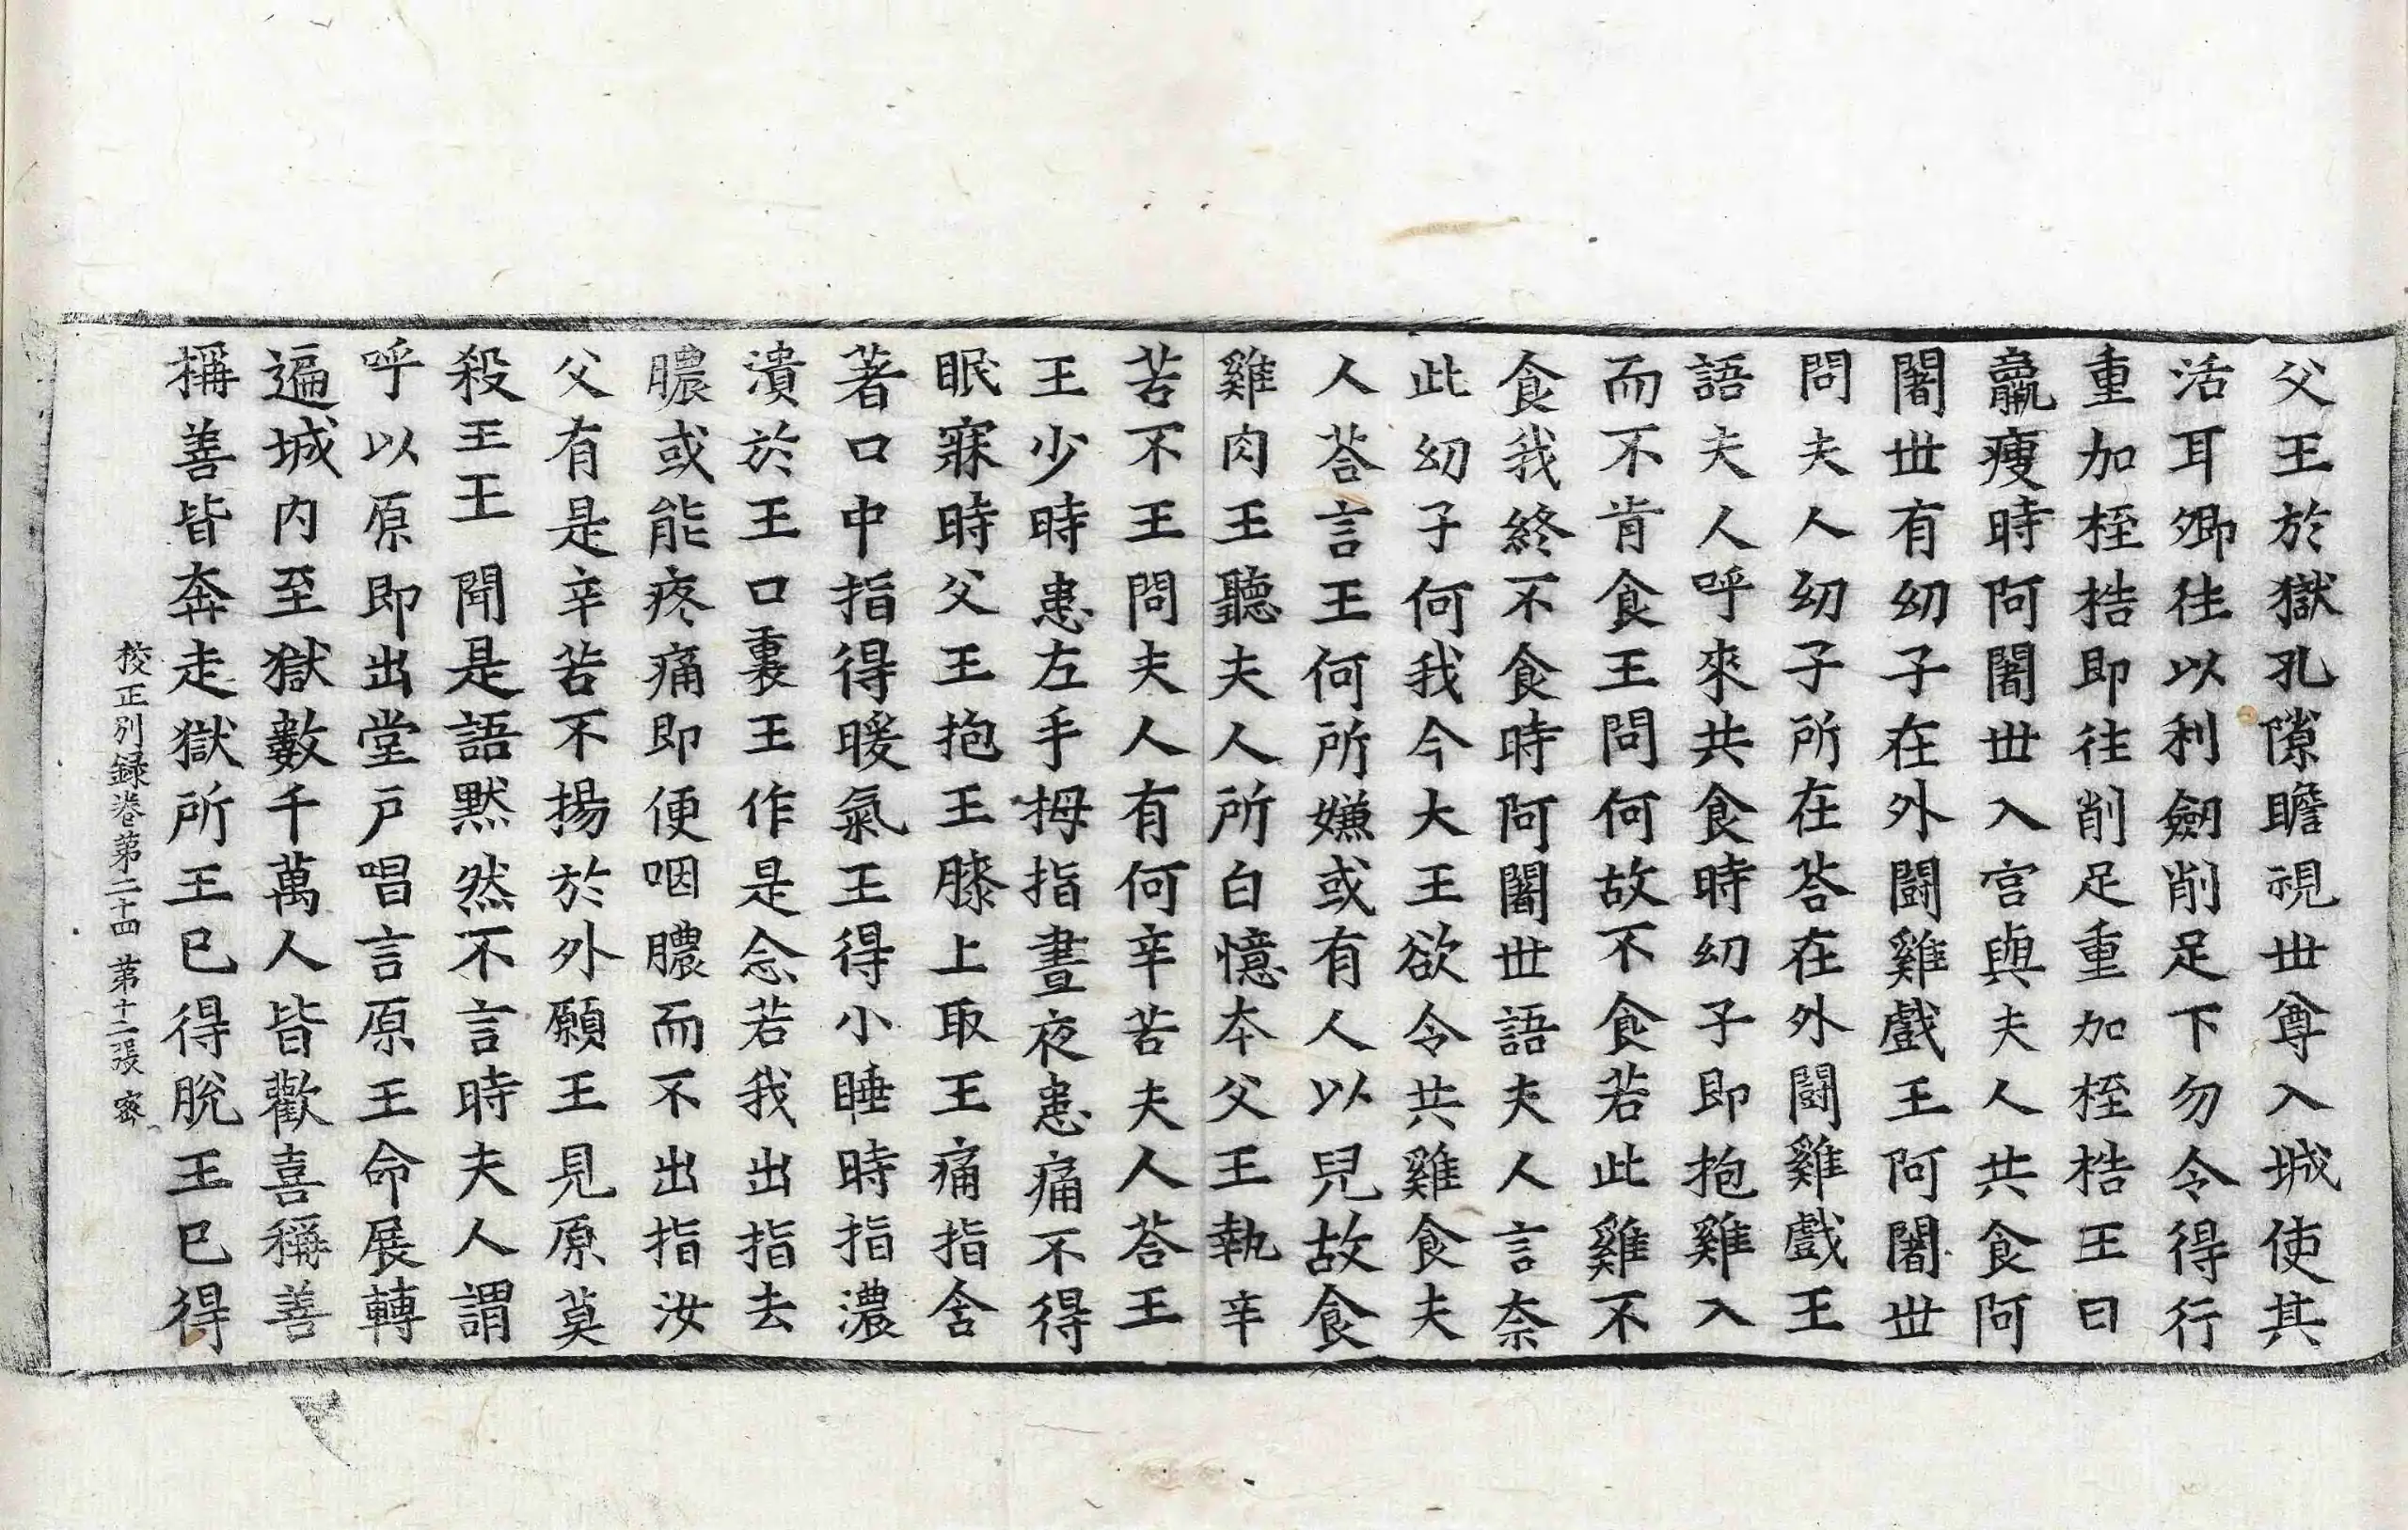 父王於獄孔隙瞻視世尊入城使其
活耳卿徃以利劒削足下勿令得行
重加桎梏即徃削足重加桎梏王曰
羸瘦時阿闍世入宮與夫人共食阿
闍世有幼子在外闘雞戲王阿闍世
問夫人幼子所在荅在外闘雞戲王
語夫人呼來共食時幼子即抱雞入
而不肯食王問何故不食若此雞不
食我終不食時阿闍世語夫人言奈
此幼子何我今大王欲令共雞食夫
人荅言王何所嫌或有人以兒故食
雞肉王聽夫人所白憶本父王執辛
苦不王問夫人有何辛苦夫人荅王
王少時患左手拇指晝夜患痛不得
眠寐時父王抱王膝上取王痛指含
著口中指得暖氣王得小睡時指濃
潰於王口裏王作是念若我出指去
膿或能疼痛即便咽膿而不出指汝
父有是辛苦不揚於外願王見原莫
殺王王聞是語默然不言時夫人謂
呼以原即出堂戶唱言原王命展轉
遍城內至獄數千萬人皆歡喜稱善
稱善皆奔走獄所王已得脫王已得
校正別録卷第二十四 第十二張 密